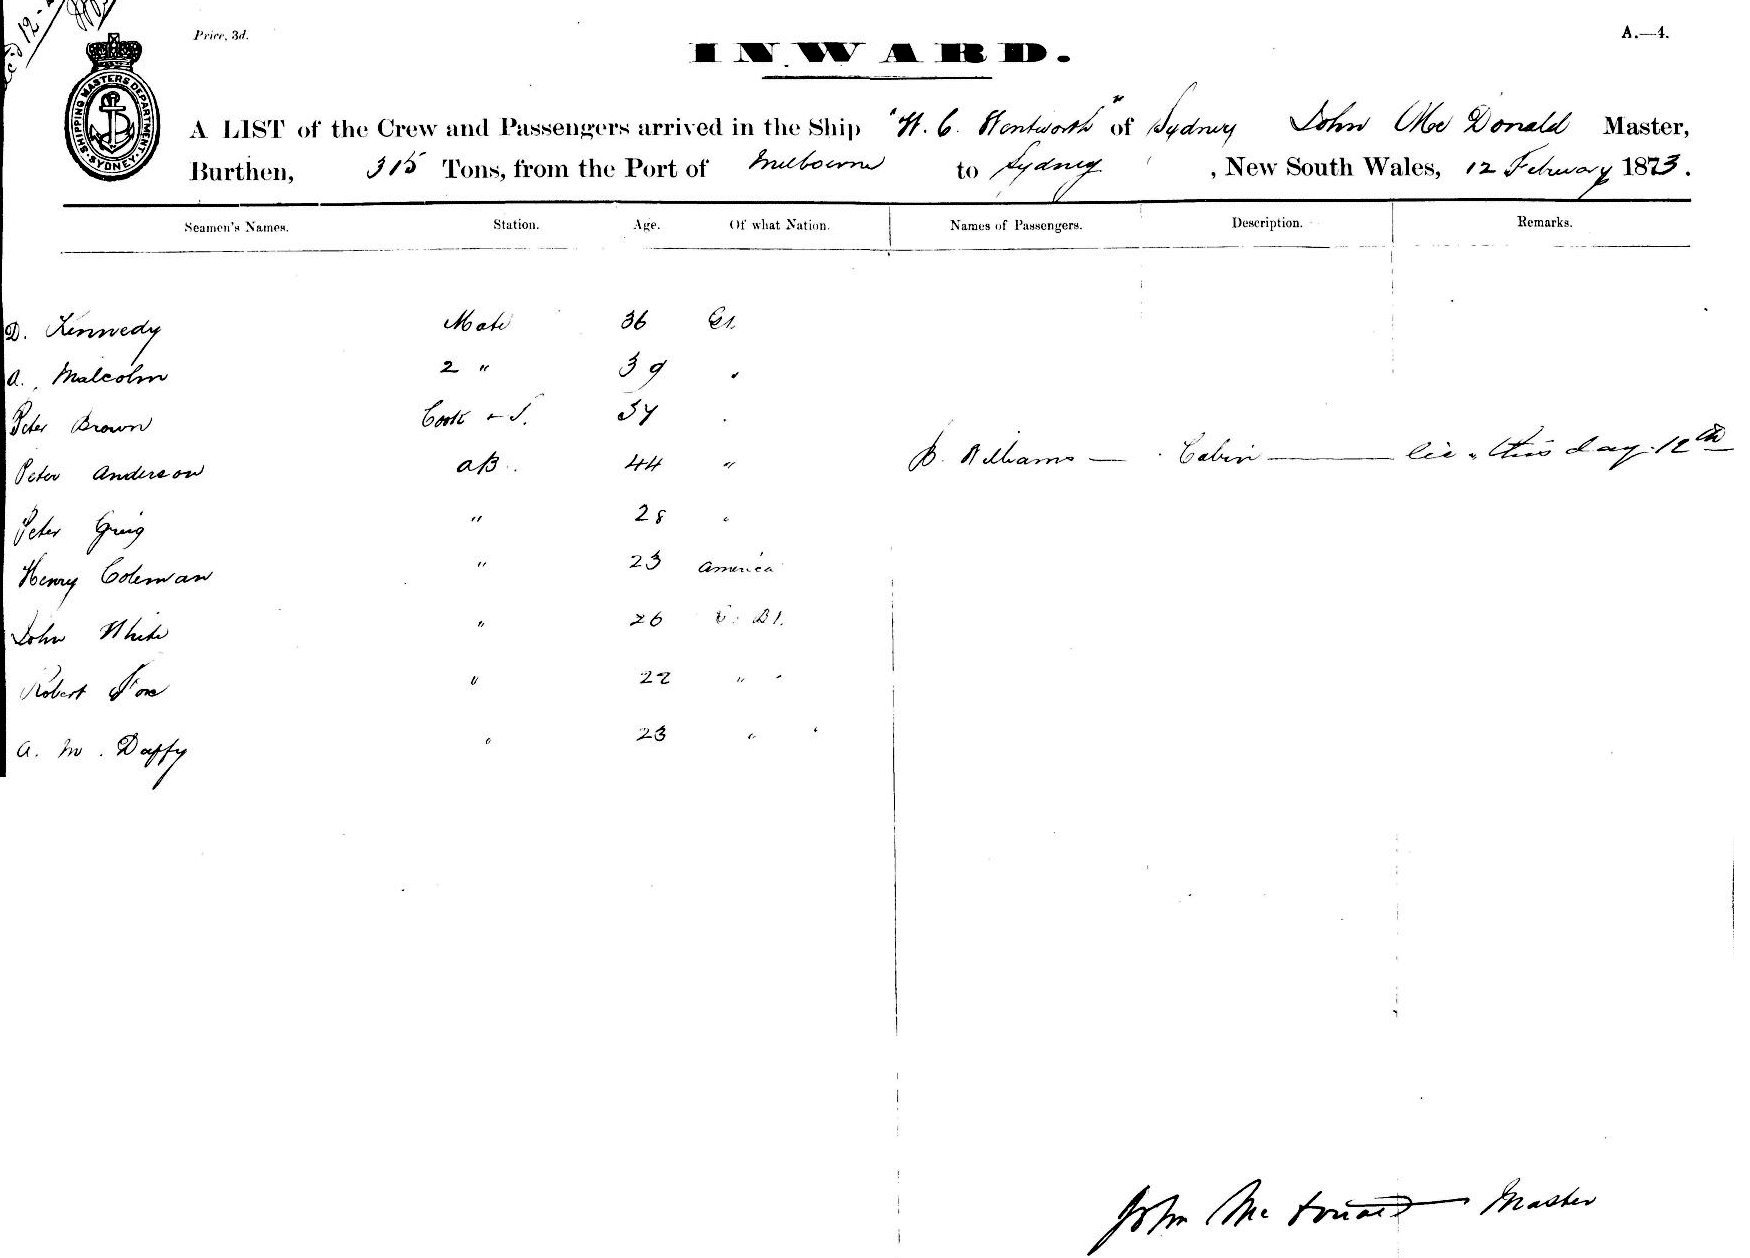 Price, 3d.
A.—4.
INWARD.
SHIPPING MASTERS DEPARTMENT · SYDNEY ·
A LIST of the Crew and Passengers arrived in the Ship "W. C. Wentworth" of Sydney John Mc Donald Master,
Burthen, 315 Tons, from the Port of Melbourne to Sydney, New South Wales, 12 February 1873.
Seamen's Names. Station. Age. Of what Nation. Names of Passengers. Description. Remarks.
D. Kennedy Mate 36
A. Malcolm 2 " 39 "
Peter Brown Cook + S. 37 "
Peter Anderson AB. 44 "
B. Williams — Cabin — this day 12th
Peter Greig " 28 "
Henry Coleman " 23 America
John White " 26
Robert Fox " 22 " "
A. M. Daffy " 23 " "
John Mc Donald Master